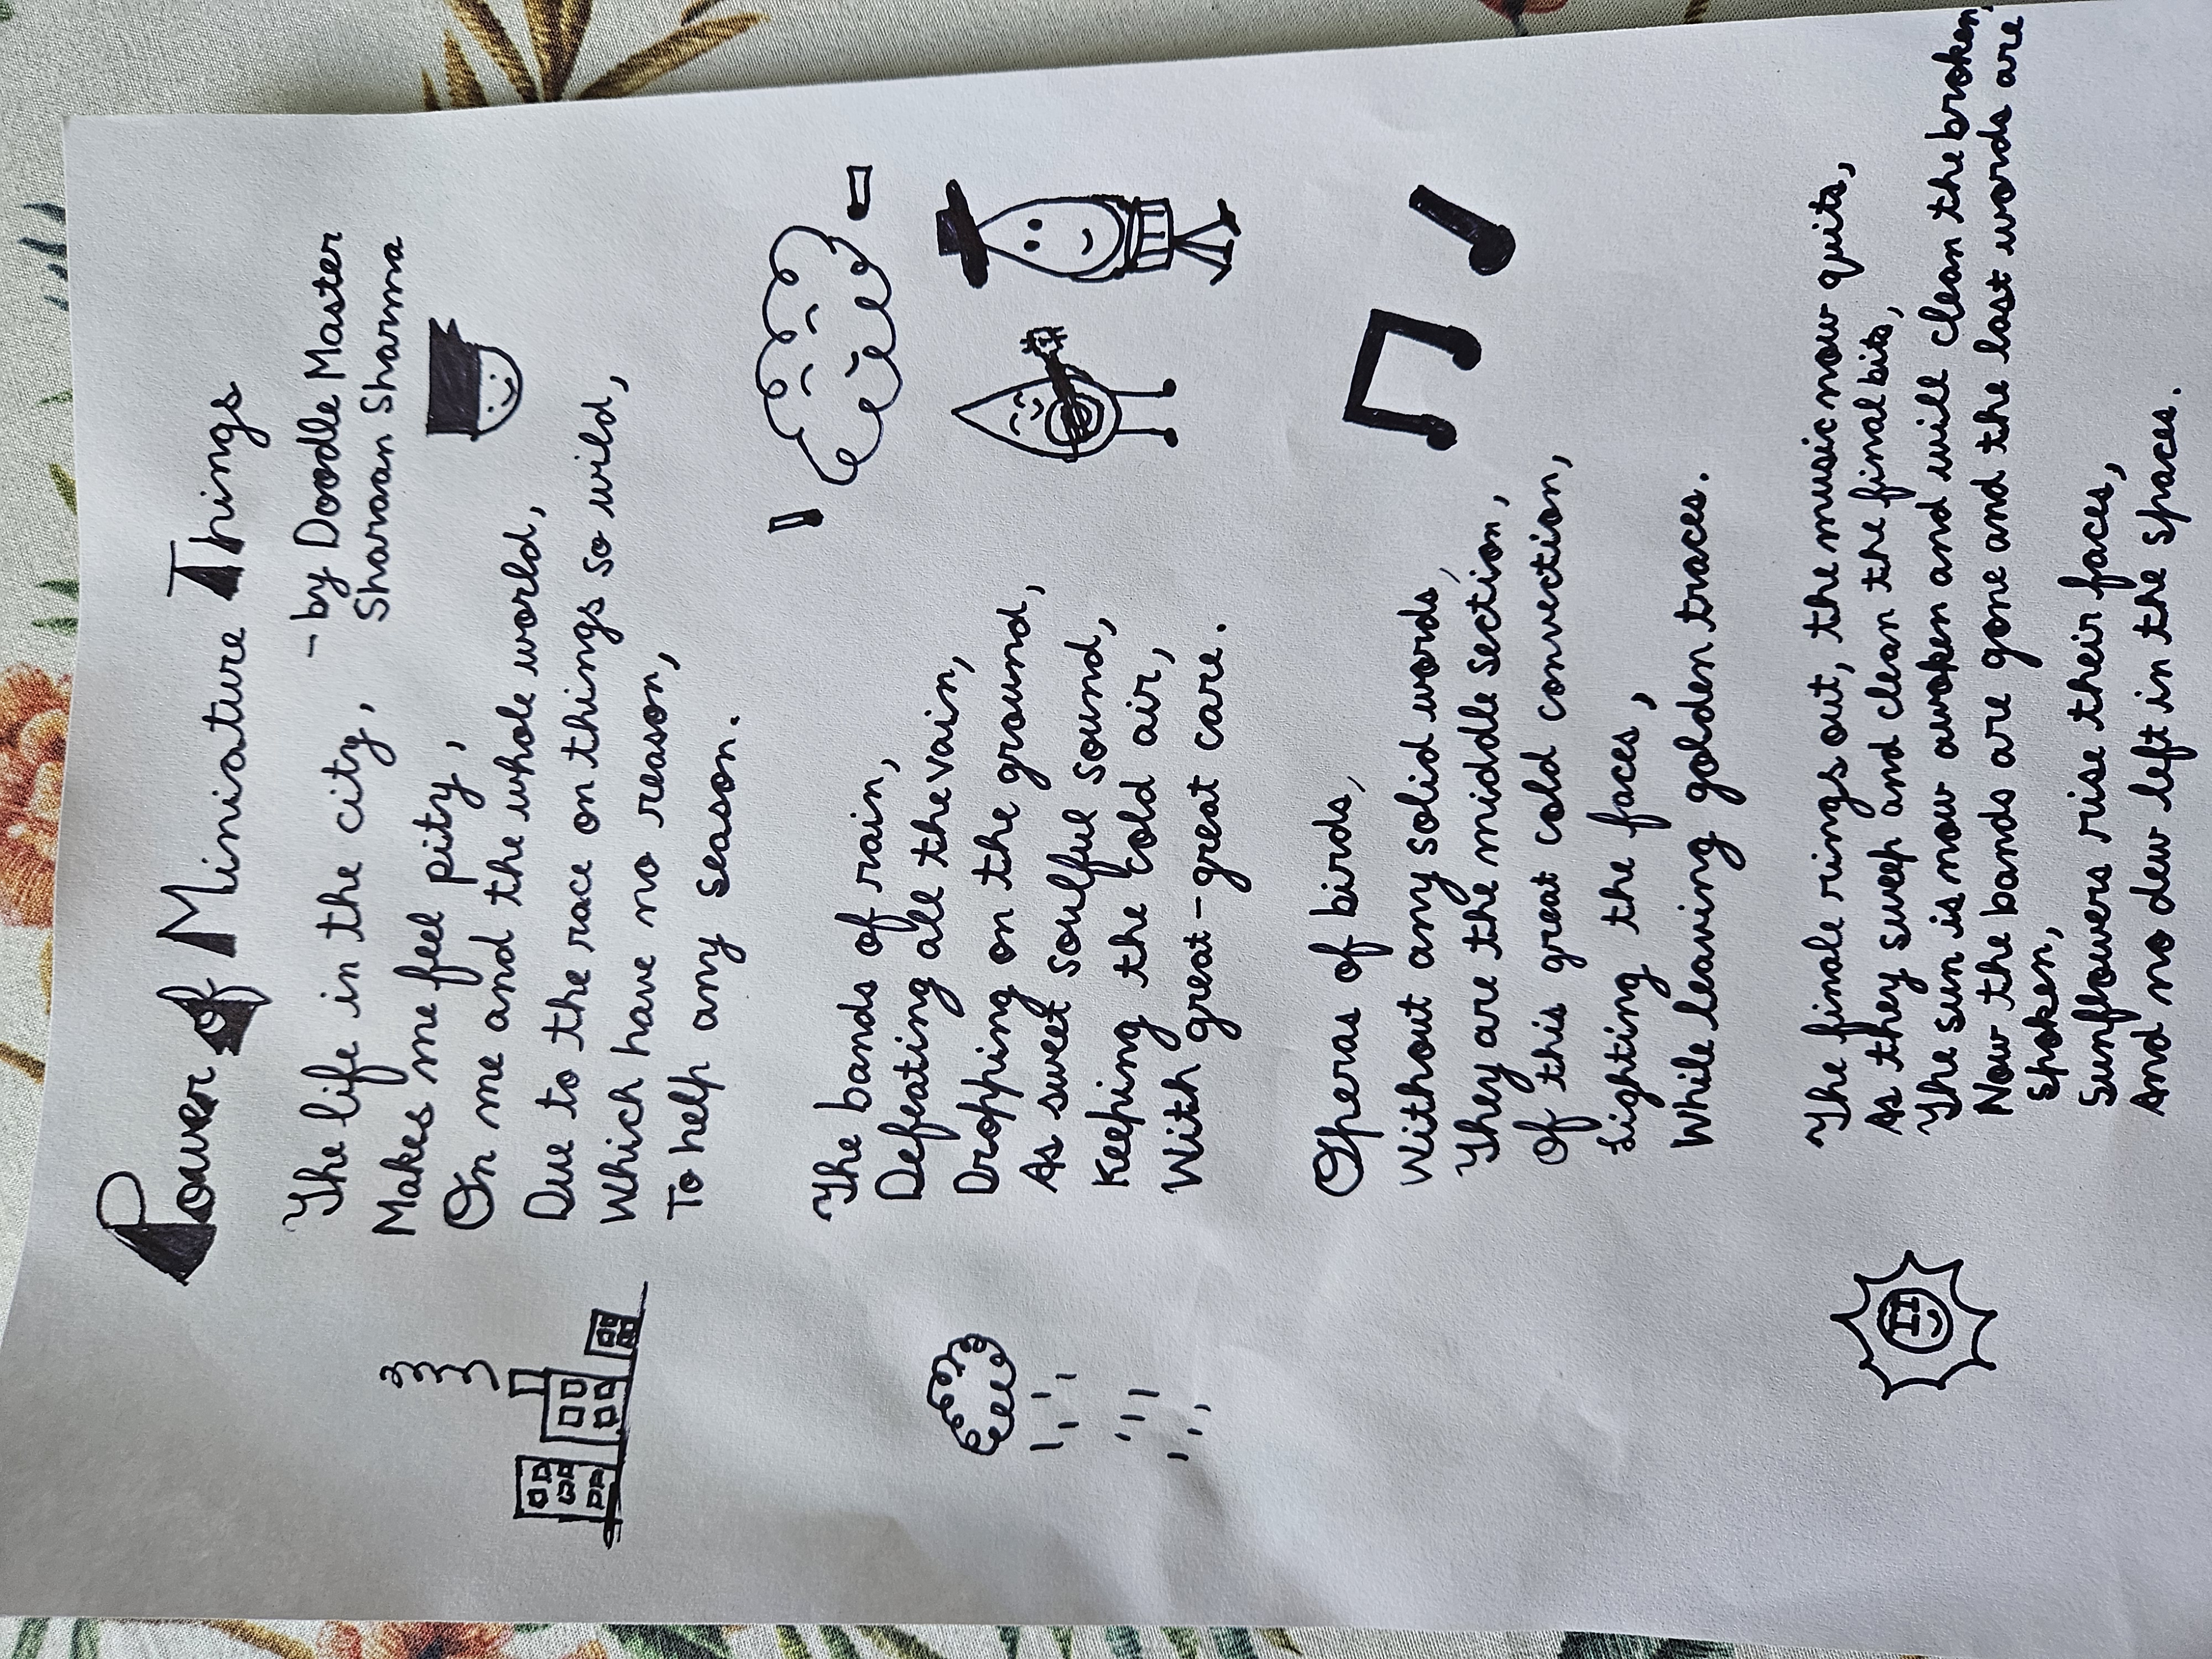 Power of Miniature Things
- by Doodle Master
Sharaan Sharma
The life in the city,
Makes me feel pity,
On me and the whole world,
Due to the race on things so wild,
Which have no reason,
To help any season.
The bands of rain,
Defeating all the vain,
Dropping on the ground,
As sweet soulful sound,
Keeping the cold air,
With great-great care.
Operas of birds,
Without any solid words,
They are the middle section,
Of this great cold convection,
Lighting the faces,
While leaving golden traces.
The finale rings out, the music now quits,
As they sweep and clean the final bits,
The sun is now awoken and will clean the broken,
Now the bands are gone and the last words are
spoken,
Sunflowers rise their faces,
And no dew left in the spaces.